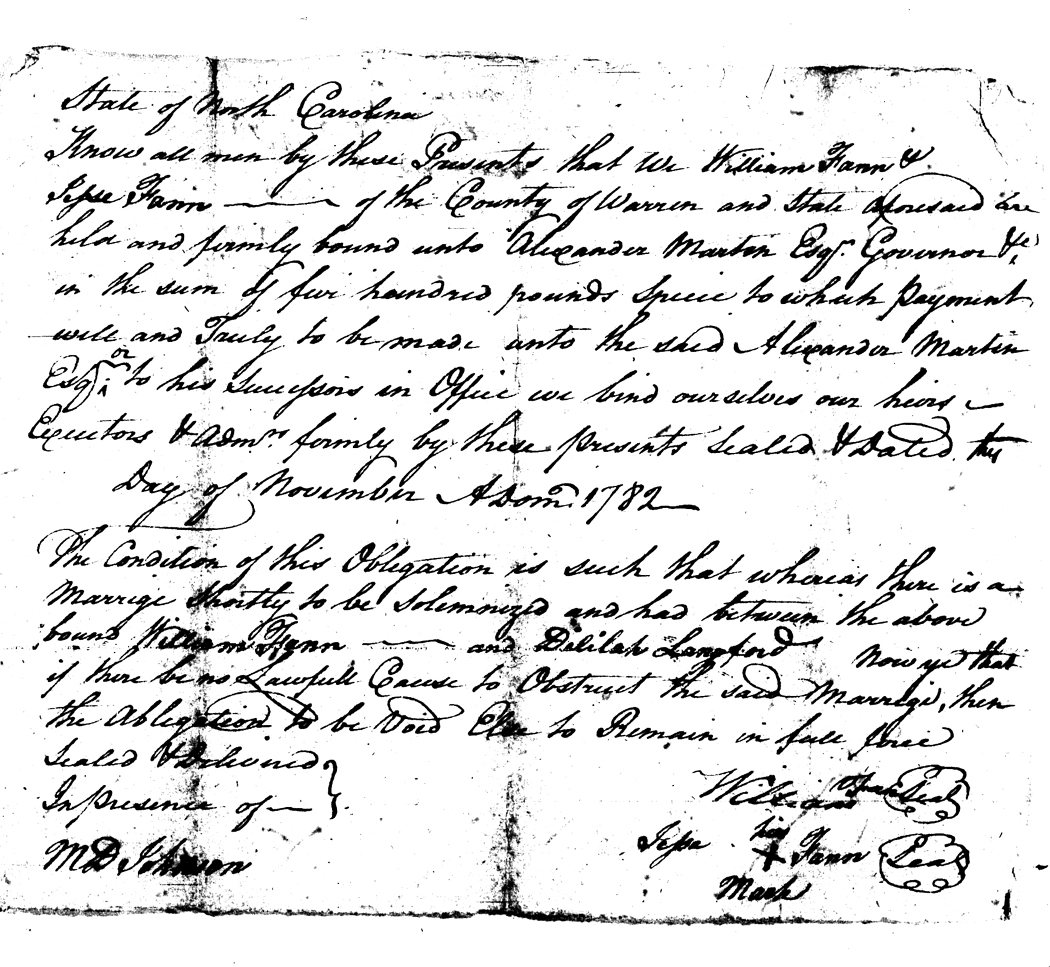 State of North Carolina
Know all men by these Presents that We William Fann &
Jesse Fann of the County of Warren and State aforesaid are
held and firmly bound unto Alexander Martin Esqr. Governor &c
in the sum of five hundred pounds Specie to which payment
well and Truly to be made unto the said Alexander Martin
Esqr or to his Successors in Office we bind ourselves our heirs
Executors & Admrs firmly by these presents Sealed & Dated this
Day of November A Dom. 1782
The Condition of this Obligation is such that whereas there is a
Marrige Shortly to be Solemnized and had between the above
bound William Fann and Delilah Langford Now ye that
if there be no Lawfull Cause to Obstruct the said Marrige, then
the Abligation to be Void Else to Remain in full force
Sealed & Delivered
In presence of
William Fann Seal
Jesse his + Fann Seal
Mark
M D Johnson